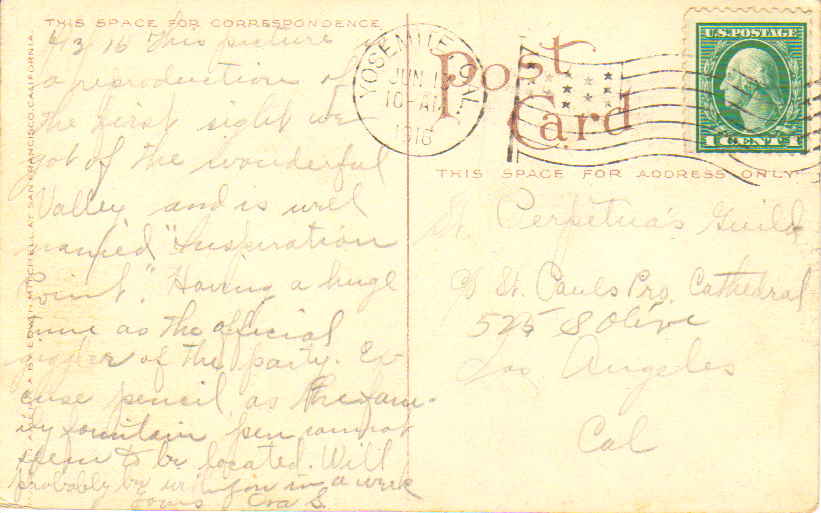 THIS SPACE FOR CORRESPONDENCE
This picture
a reproduction of
the first sight we
got of the wonderful
Valley and is well
named "Inspiration
Point." Having a huge
time as the official
of the party. Ex
cuse pencil as the fam-
ily fountain pen cannot
seem to be located. Will
probably be with you in a week
Yours Cora S.
YOSEMITE, CAL.
JUN 1
10-AM
1916
Post
Card
U.S. POSTAGE
1 CENT 1
THIS SPACE FOR ADDRESS ONLY
St. Perpetua's Guild
c/o St. Pauls Pro. Cathedral
525 S Olive
Los Angeles
Cal
MITCHELL, AT SAN FRANCISCO, CALIFORNIA